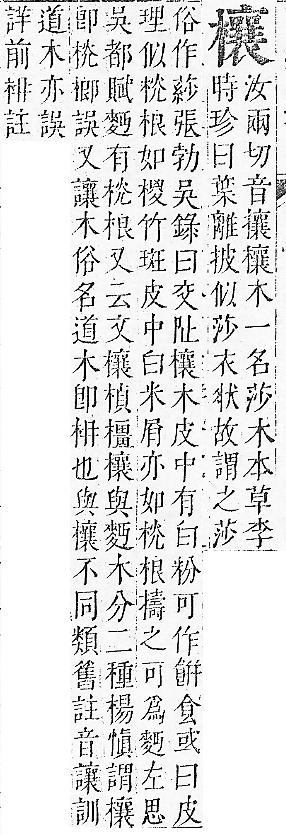 欀
汝兩切音穰欀木一名莎木本草李
時珍曰葉離披似莎衣狀故謂之莎
俗作張勃吳錄曰交阯欀木皮中有白粉可作餠食或曰皮
理似桄桹如椶竹斑皮中白米屑亦如桄桹擣之可爲麪左思
吳都賦麪有桄桹又云文欀楨橿欀與麪木分二種楊愼謂欀
卽桄榔誤又讓木俗名道木卽枏也與欀不同類舊註音讓訓
道木亦誤
詳前枏註